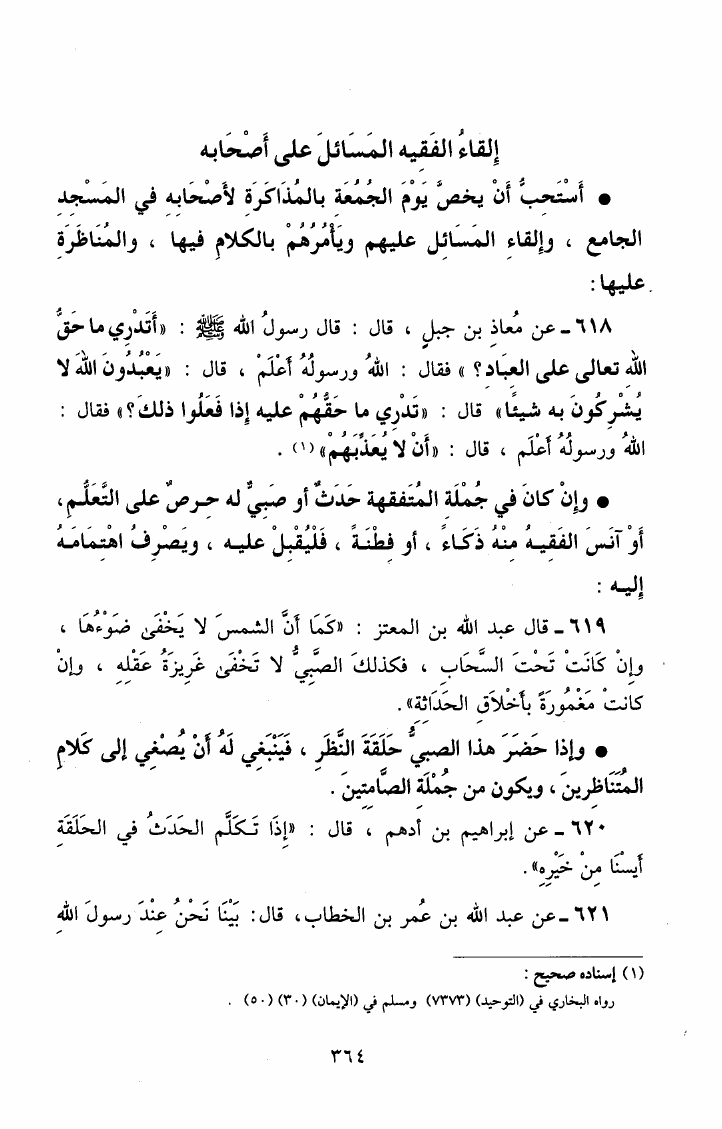 إلقاءُ الفَقِيه المَسَائلَ على أَصْحَابه
● أَسْتَحِبُّ أَنْ يخصَّ يَوْمَ الجُمُعَة بالمُذَاكَرَةِ لأصْحَابِه في المَسْجدِ
الجامع ، وإلقاءِ المَسَائل عليهم ويَأْمُرُهُمْ بالكَلامِ فيها ، والمُنَاظَرَةِ
عليها :
٦١٨ ـ عن مُعاذِ بن جبلٍ ، قال : قال رسولُ الله ﷺ : «أَتَدْرِي ما حَقُّ
اللهِ تعالى على العِبَادِ؟ » فقال : اللهُ ورسولُهُ أَعْلَمْ ، قال : «يَعْبُدُونَ اللهَ لا
يُشْرِكُونَ به شيئًا» قال : «تَدْرِي ما حَقُّهُمْ عليه إذا فَعَلُوا ذلكَ؟» فقال :
اللهُ ورسولُهُ أَعْلَم ، قال : «أنْ لا يُعَذِّبَهُمْ»(١) .
● وإنْ كانَ في جُمْلَة المُتَفقهة حَدَثٌ أو صَبِيٌّ له حرصٌ على التَّعَلُّمِ ،
أَوْ آنَسَ الفَقيهُ مِنْهُ ذَكَاءً ، أو فِطْنَةً ، فَلْيُقْبِلْ عليه ، ويَصْرِفُ اهْتِمَامَهُ
إليه :
٦١٩ ـ قال عبد الله بن المعتز : «كَمَا أنَّ الشمسَ لا يَخْفَى ضَوْءُهَا ،
وإنْ كَانَتْ تَحْتَ السَّحَابِ ، فكذلكَ الصَّبِيُّ لا تَخْفَى غَرِيزَةُ عَقْلِهِ ، وإنْ
كانتْ مَغْمُورَةً بأخْلاقِ الحَدَاثَةِ» .
● وإذا حَضَرَ هذا الصبيُّ حَلَقَةَ النَّظَرِ ، فَيَنْبَغِي لَهُ أَنْ يُصْغِي إلى كَلامِ
المُتَنَاظِرِينَ ، ويكون من جُمْلَةِ الصَّامِتِينَ .
٦٢٠ ـ عن إبراهيم بن أدهم ، قال : «إذَا تَكَلَّم الحَدَثُ في الحَلَقَةِ
أَيِسْنَا مِنْ خَيْرِهِ» .
٦٢١ ـ عن عبد الله بن عُمر بن الخطاب ، قال : بَيْنَا نَحْنُ عِنْدَ رسولَ اللهِ
(١) إسناده صحيح :
رواه البخاري في (التوحيد) (٧٣٧٣) ومسلم في (الإيمان) (٣٠) (٥٠) .
٣٦٤